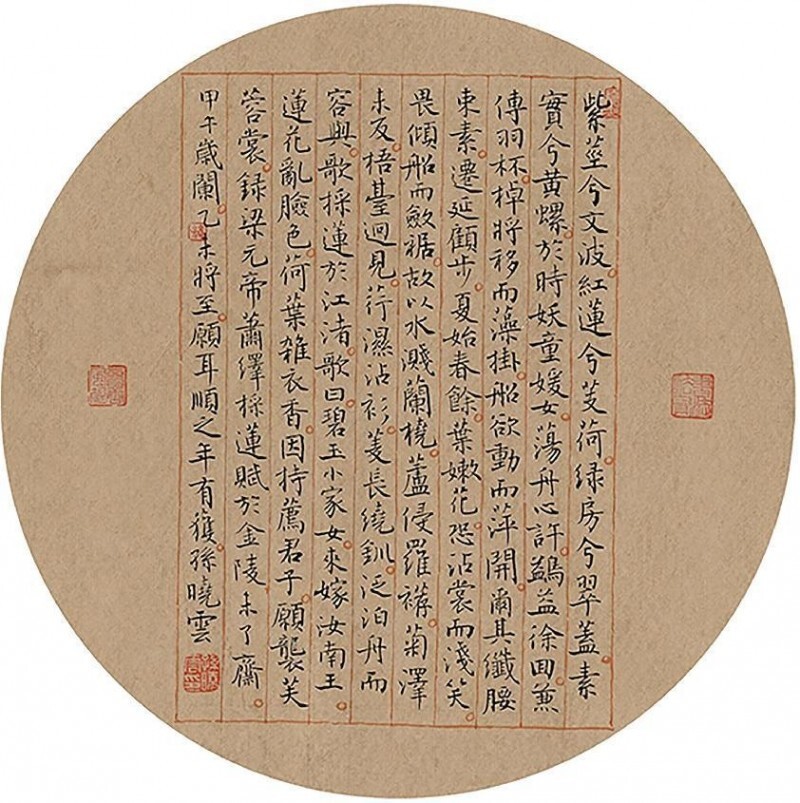 紫莖兮文波紅蓮兮芰荷綠房兮翠蓋素
實兮黃螺於時妖童媛女蕩舟心許鷁徐回兼
傳羽杯棹將移而藻掛船欲動而萍開爾其纖腰
束素遷延顧步夏始春餘葉嫩花恐沾裳而淺笑
畏傾船而斂裾故以水濺蘭橈蘆侵羅褠菊澤
未反梧臺迥見荇濕沾衫菱長繞釧泛泊舟而
容與歌採蓮於江渚歌曰碧玉小家女來嫁汝南王
蓮花亂臉色荷葉雜衣香因持薦君子願襲芙
蓉裳録梁元帝蕭繹採蓮賦於金陵未了齋
甲午歲闌乙未將至願耳順之年有獲孫曉雲